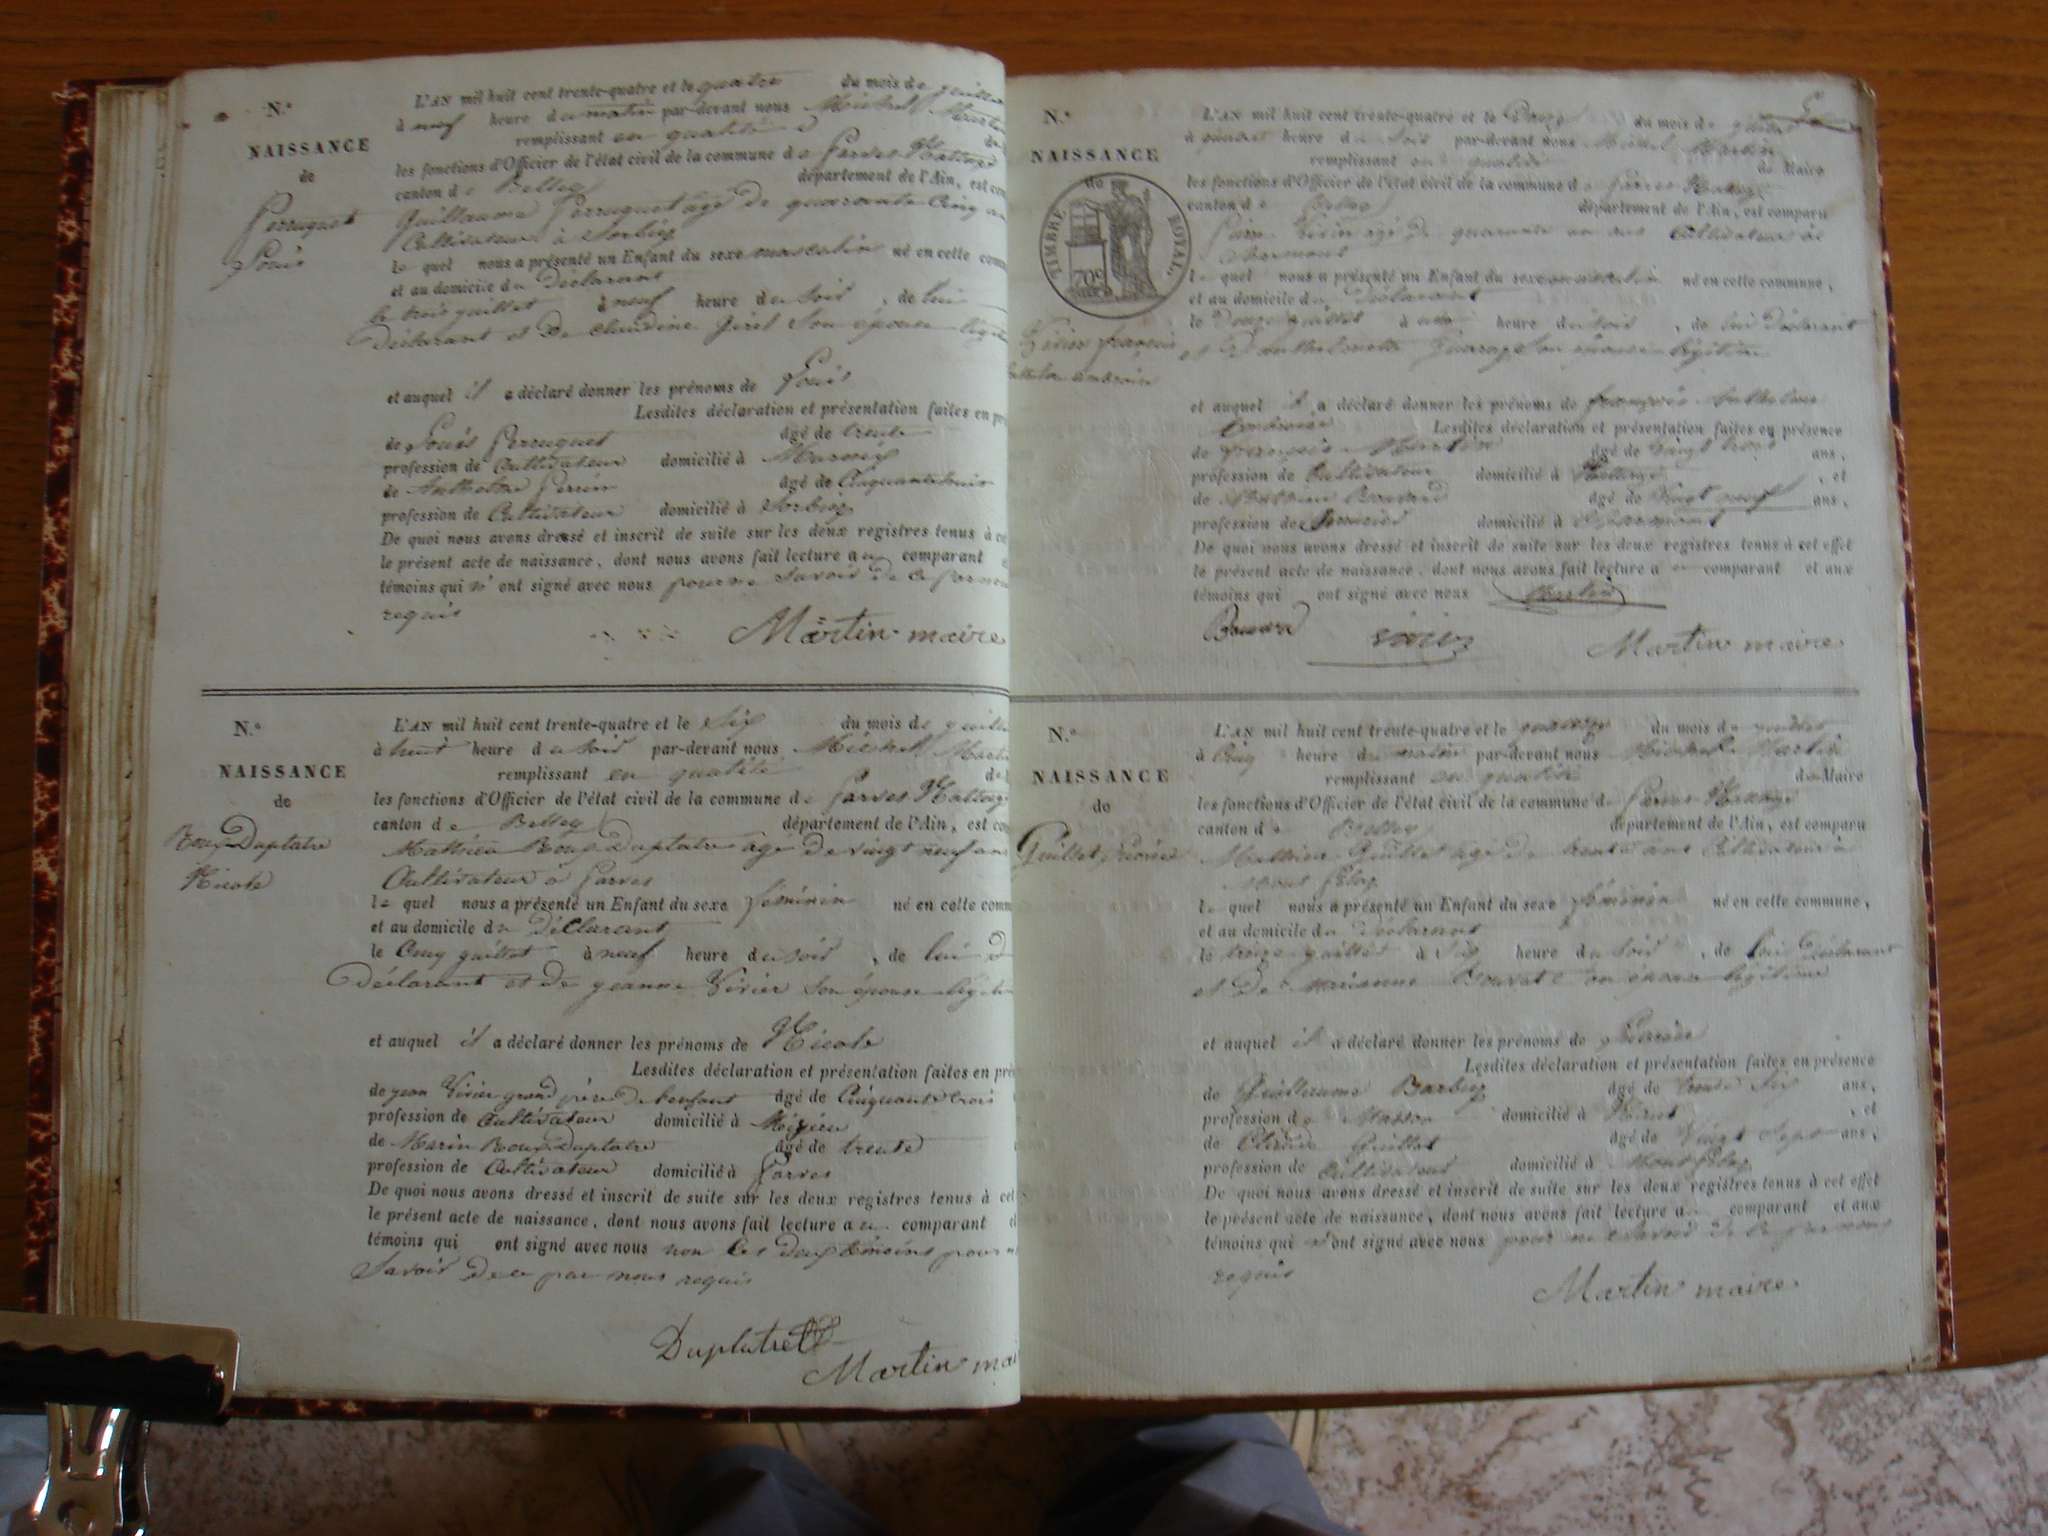 N.°
NAISSANCE
de
Perruquet
Louis
L'AN mil huit cent trente-quatre et le quatre du mois de juillet
à neuf heure du matin par-devant nous Michel Martin
remplissant en qualité
les fonctions d'Officier de l'état civil de la commune de
canton de Belley département de l'Ain, est com
Guillaume Perruquet agé de quarante Cinq an
Cultivateur à
le quel nous a présenté un Enfant du sexe masculin né en cette comm
et au domicile du Déclarant
le trois juillet à neuf heure du soir, de lui
Déclarant et De Claudine son épouse
et auquel il a déclaré donner les prénoms de Louis
Lesdites déclaration et présentation faites en pré
de Louis Perruquet agé de trente
profession de Cultivateur domicilié à
de Anthelme Perrin agé de
profession de Cultivateur domicilié à
De quoi nous avons dressé et inscrit de suite sur les deux registres tenus à cet
le présent acte de naissance, dont nous avons fait lecture au comparant
témoins qui n'ont signé avec nous pour ne savoir de ce
requis
Martin maire
N.°
NAISSANCE
de
Roux Duplatre
Nicole
L'AN mil huit cent trente-quatre et le Six du mois de juillet
à huit heure du soir par-devant nous Michel Martin
remplissant en qualité
les fonctions d'Officier de l'état civil de la commune de
canton de Belley département de l'Ain, est com
Mathieu Roux Duplatre agé De vingt neuf an
Cultivateur à
le quel nous a présenté un Enfant du sexe féminin né en cette comm
et au domicile du Déclarant
le Cinq juillet à neuf heure du soir, de lui
Déclarant et De jeanne Vivier son épouse
et auquel il a déclaré donner les prénoms de Nicole
Lesdites déclaration et présentation faites en pré
de jean Vivier grand père De l'enfant agé de Cinquante trois
profession de Cultivateur domicilié à
de Marin Roux Duplatre agé de trente
profession de Cultivateur domicilié à
De quoi nous avons dressé et inscrit de suite sur les deux registres tenus à cet
le présent acte de naissance, dont nous avons fait lecture au comparant
témoins qui ont signé avec nous non Les Deux témoins pour
Savoir De ce par nous requis
Duplatre
Martin mai
N.°
NAISSANCE
de
TIMBRE ROYAL
70c
Vivier françois
L'AN mil huit cent trente-quatre et le Douze du mois de juillet
à heure du soir par-devant nous Michel Martin
remplissant en qualité de Maire
les fonctions d'Officier de l'état civil de la commune de
canton de Belley département de l'Ain, est comparu
Vivier agé De quarante un ans Cultivateur à
le quel nous a présenté un Enfant du sexe masculin né en cette commune,
et au domicile du Déclarant
le Douze juillet à heure du soir, de lui Déclarant
et son épouse légitime
et auquel il a déclaré donner les prénoms de françois Anthelme
Ambroise Lesdites déclaration et présentation faites en présence
de françois Martin agé de Vingt trois ans,
profession de Cultivateur domicilié à, et
de Bouvard agé de Vingt neuf ans,
profession de domicilié à
De quoi nous avons dressé et inscrit de suite sur les deux registres tenus à cet effet
le présent acte de naissance, dont nous avons fait lecture au comparant et aux
témoins qui ont signé avec nous Martin
Bouvard vivier Martin maire
N.°
NAISSANCE
de
Guillot
L'AN mil huit cent trente-quatre et le du mois de juillet
à Cinq heure du matin par-devant nous Michel Martin
remplissant en qualité de Maire
les fonctions d'Officier de l'état civil de la commune de
canton de Belley département de l'Ain, est comparu
Mathieu Guillot agé De trente ans Cultivateur à
le quel nous a présenté un Enfant du sexe féminin né en cette commune,
et au domicile du Déclarant
le treize juillet à Six heure du soir, de lui Déclarant
et De marianne son épouse légitime
et auquel il a déclaré donner les prénoms de
Lesdites déclaration et présentation faites en présence
de Guillaume Barbey agé de trente Six ans,
profession de Masson domicilié à, et
de Guillot agé de Vingt Sept ans,
profession de Cultivateur domicilié à
De quoi nous avons dressé et inscrit de suite sur les deux registres tenus à cet effet
le présent acte de naissance, dont nous avons fait lecture au comparant et aux
témoins qui n'ont signé avec nous pour ne savoir De ce par nous
requis
Martin maire